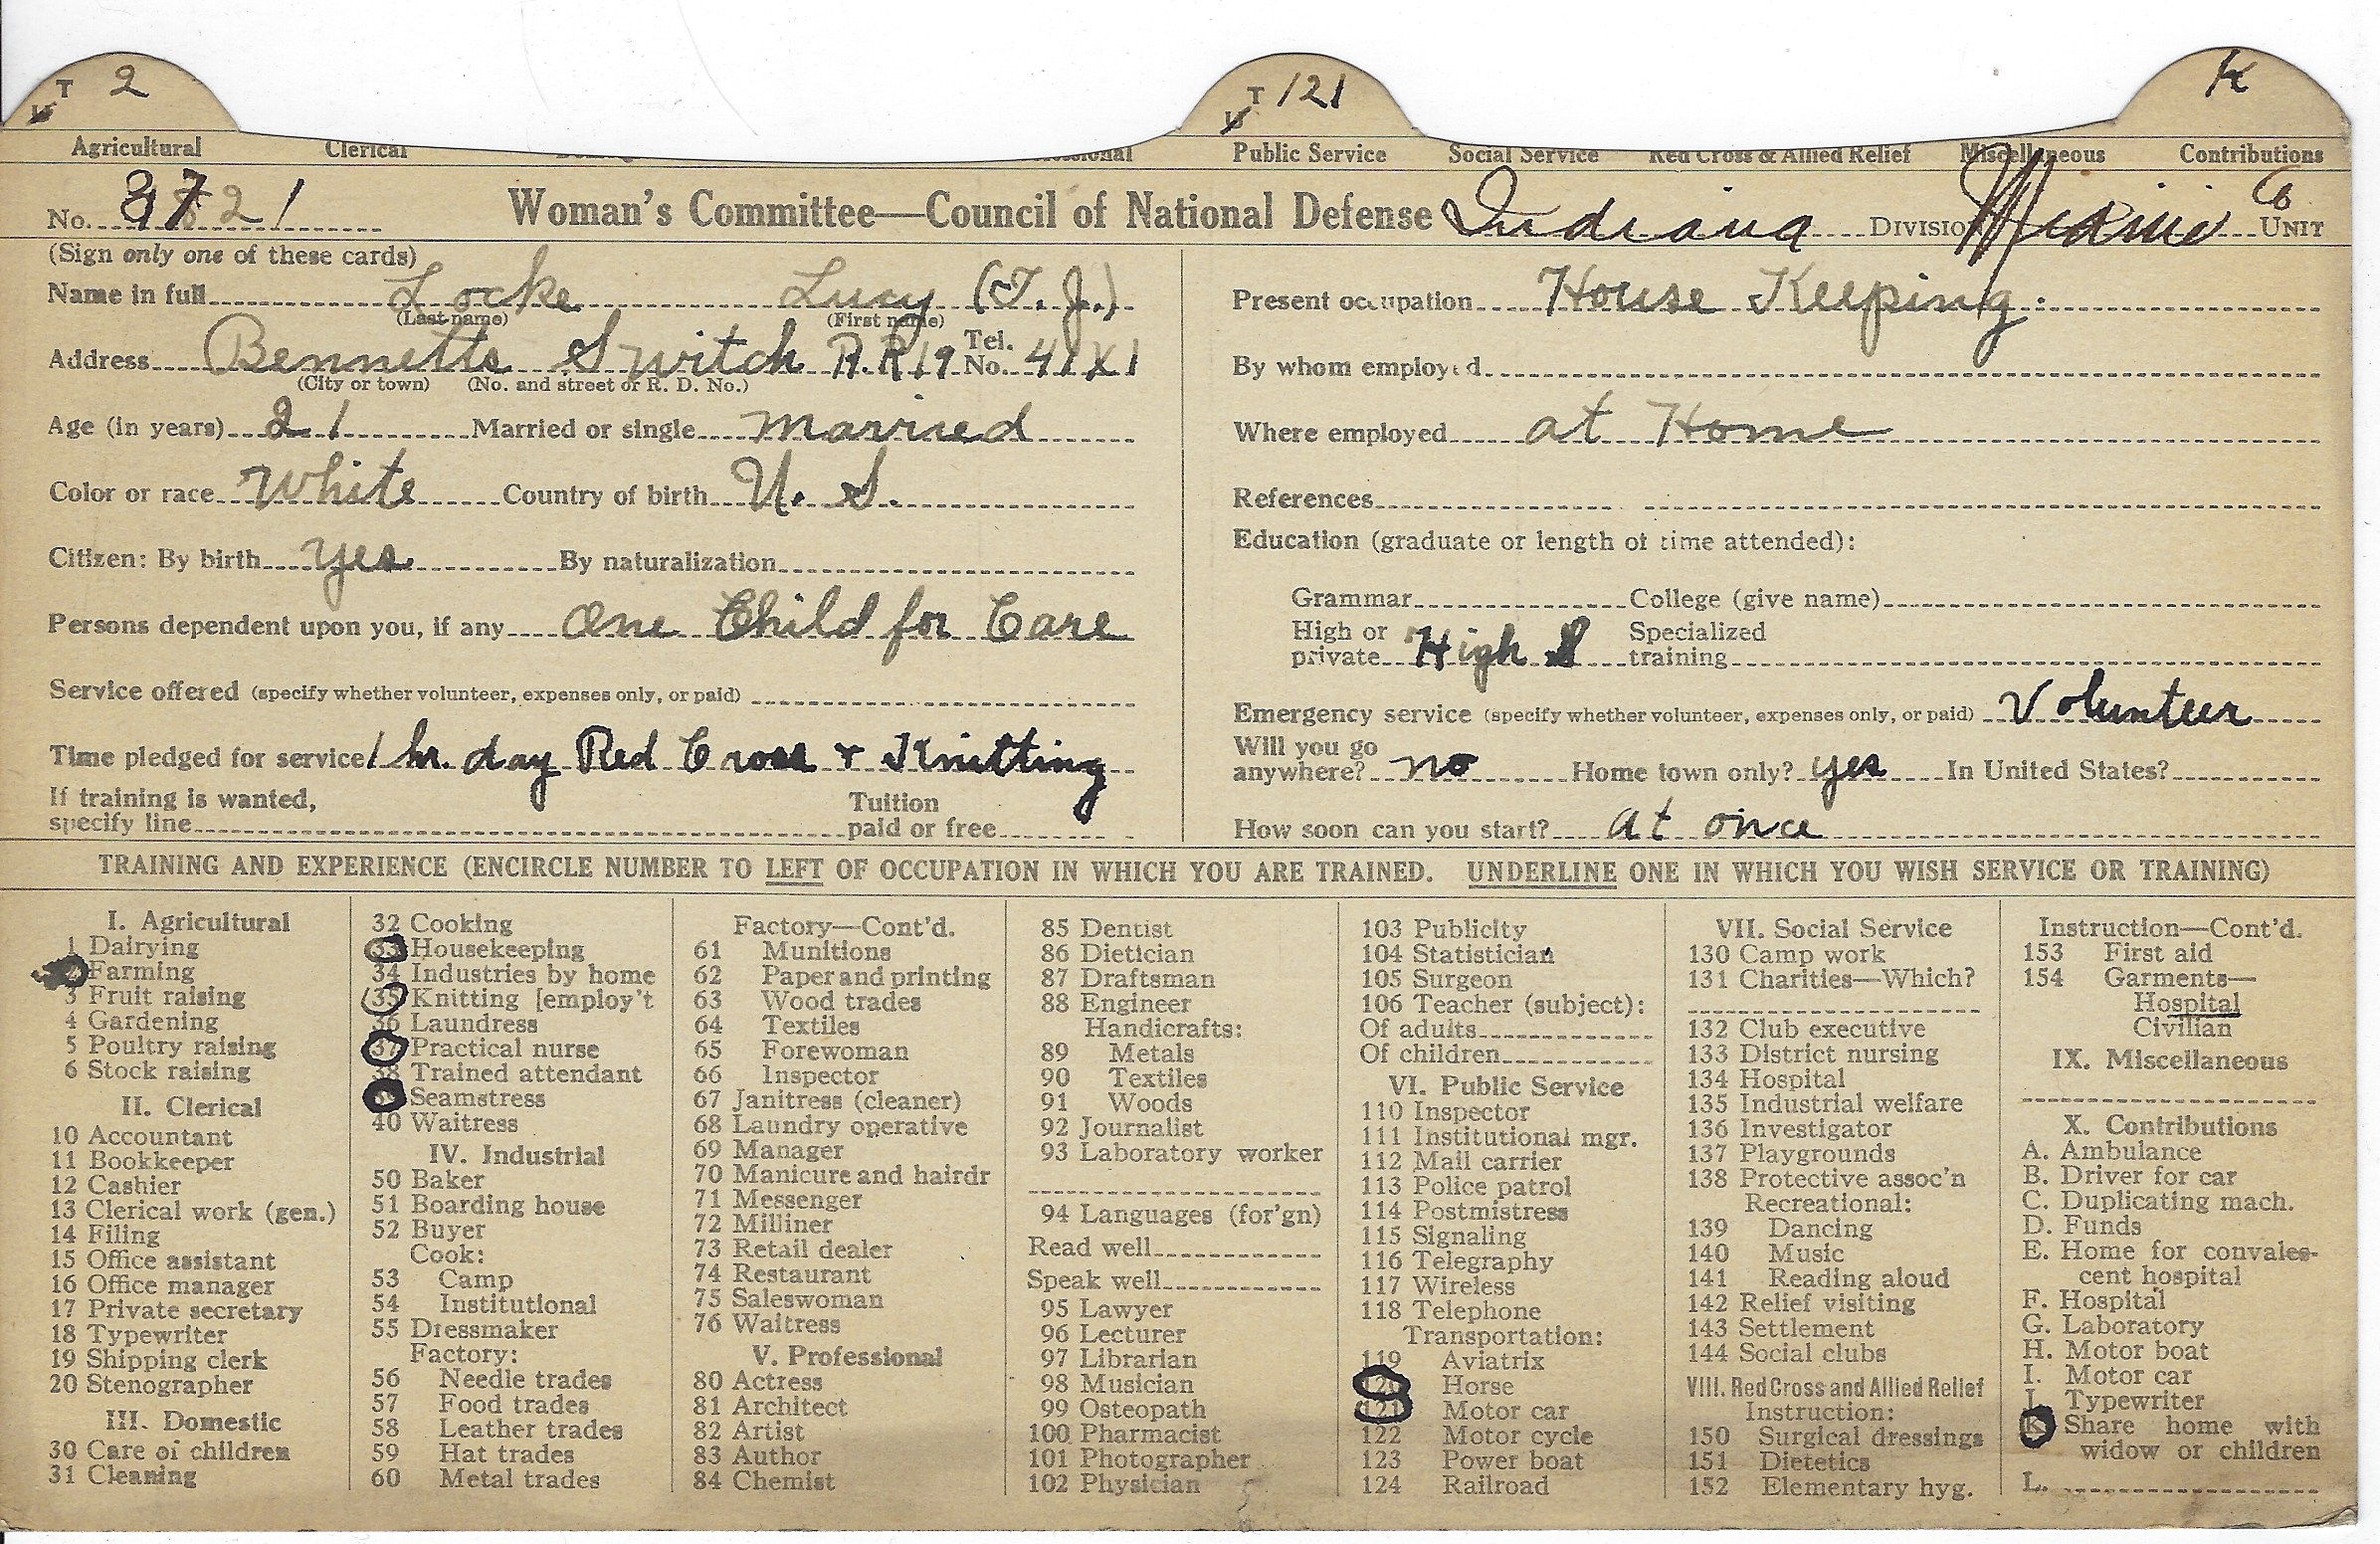 T 2
T 121
K
Agricultural Clerical Public Service Social Service Red Cross & Allied Relief Miscellaneous Contributions
No. Woman's Committee—Council of National Defense Indiana DIVISION Miami Co UNIT
(Sign only one of these cards)
Name in full Locke Lucy (T. J.)
(Last name) (First name)
Address Bennetts Switch R.R 19 Tel. No. 41X1
(City or town) (No. and street or R. D. No.)
Age (in years) 21 Married or single married
Color or race White Country of birth U. S.
Citizen: By birth yes By naturalization
Persons dependent upon you, if any One Child for Care
Service offered (specify whether volunteer, expenses only, or paid)
Time pledged for service 1 hr. day Red Cross & Knitting
If training is wanted, Tuition
specify line paid or free
Present occupation House Keeping
By whom employed
Where employed at Home
References
Education (graduate or length of time attended):
Grammar College (give name)
High or Specialized
private High S training
Emergency service (specify whether volunteer, expenses only, or paid) Volunteer
Will you go
anywhere? no Home town only? yes In United States?
How soon can you start? at once
TRAINING AND EXPERIENCE (ENCIRCLE NUMBER TO LEFT OF OCCUPATION IN WHICH YOU ARE TRAINED. UNDERLINE ONE IN WHICH YOU WISH SERVICE OR TRAINING)
I. Agricultural
1 Dairying
2 Farming
3 Fruit raising
4 Gardening
5 Poultry raising
6 Stock raising
II. Clerical
10 Accountant
11 Bookkeeper
12 Cashier
13 Clerical work (gen.)
14 Filing
15 Office assistant
16 Office manager
17 Private secretary
18 Typewriter
19 Shipping clerk
20 Stenographer
III. Domestic
30 Care of children
31 Cleaning
32 Cooking
33 Housekeeping
34 Industries by home
35 Knitting [employ't
36 Laundress
37 Practical nurse
38 Trained attendant
39 Seamstress
40 Waitress
IV. Industrial
50 Baker
51 Boarding house
52 Buyer
Cook:
53 Camp
54 Institutional
55 Dressmaker
Factory:
56 Needle trades
57 Food trades
58 Leather trades
59 Hat trades
60 Metal trades
Factory—Cont'd.
61 Munitions
62 Paper and printing
63 Wood trades
64 Textiles
65 Forewoman
66 Inspector
67 Janitress (cleaner)
68 Laundry operative
69 Manager
70 Manicure and hairdr
71 Messenger
72 Milliner
73 Retail dealer
74 Restaurant
75 Saleswoman
76 Waitress
V. Professional
80 Actress
81 Architect
82 Artist
83 Author
84 Chemist
85 Dentist
86 Dietician
87 Draftsman
88 Engineer
Handicrafts:
89 Metals
90 Textiles
91 Woods
92 Journalist
93 Laboratory worker
94 Languages (for'gn)
Read well
Speak well
95 Lawyer
96 Lecturer
97 Librarian
98 Musician
99 Osteopath
100 Pharmacist
101 Photographer
102 Physician
103 Publicity
104 Statistician
105 Surgeon
106 Teacher (subject):
Of adults
Of children
VI. Public Service
110 Inspector
111 Institutional mgr.
112 Mail carrier
113 Police patrol
114 Postmistress
115 Signaling
116 Telegraphy
117 Wireless
118 Telephone
Transportation:
119 Aviatrix
120 Horse
121 Motor car
122 Motor cycle
123 Power boat
124 Railroad
VII. Social Service
130 Camp work
131 Charities—Which?
132 Club executive
133 District nursing
134 Hospital
135 Industrial welfare
136 Investigator
137 Playgrounds
138 Protective assoc'n
Recreational:
139 Dancing
140 Music
141 Reading aloud
142 Relief visiting
143 Settlement
144 Social clubs
VIII. Red Cross and Allied Relief
Instruction:
150 Surgical dressings
151 Dietetics
152 Elementary hyg.
Instruction—Cont'd.
153 First aid
154 Garments—
Hospital
Civilian
IX. Miscellaneous
X. Contributions
A. Ambulance
B. Driver for car
C. Duplicating mach.
D. Funds
E. Home for convales-
cent hospital
F. Hospital
G. Laboratory
H. Motor boat
I. Motor car
J. Typewriter
K Share home with
widow or children
L.